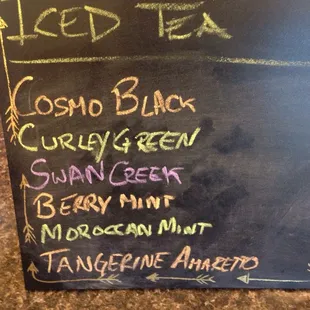 ICED TEA
COSMO BLACK
CURLEY GREEN
SWAN CREEK
BERRY MINT
MOROCCAN MINT
TANGERINE AMARETTO